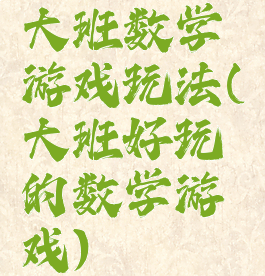 大班数学
游戏玩法(
大班好玩
的数学游
戏)